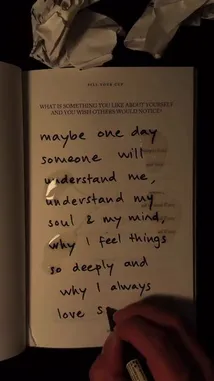 WHAT IS SOMETHING YOU LIKE ABOUT YOURSELF
AND YOU WISH OTHERS WOULD NOTICE?
maybe one day
someone will
understand me,
understand my
soul & my mind,
why I feel things
so deeply and
why I always
love s